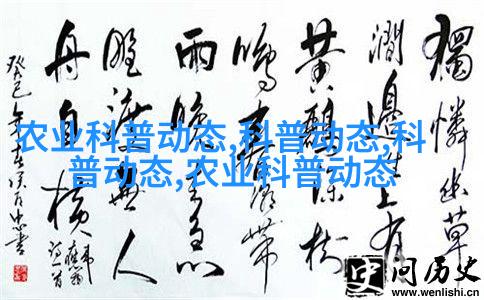 獨憐幽草
澗邊生上有
黄鸝深樹
鳴春潮帶
雨晚来急
野渡無人
舟自横
农业科普动态,科普动态,科
普动态,农业科普动态
问历史
www.wenlishi.cn